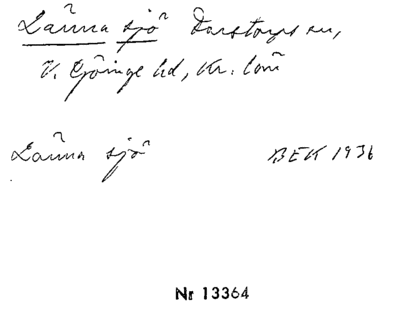 Lärna sjö Farstorps sn,
V. Göinge hd, Kr. län
Lärna sjö BEK 1936
Nr 13364